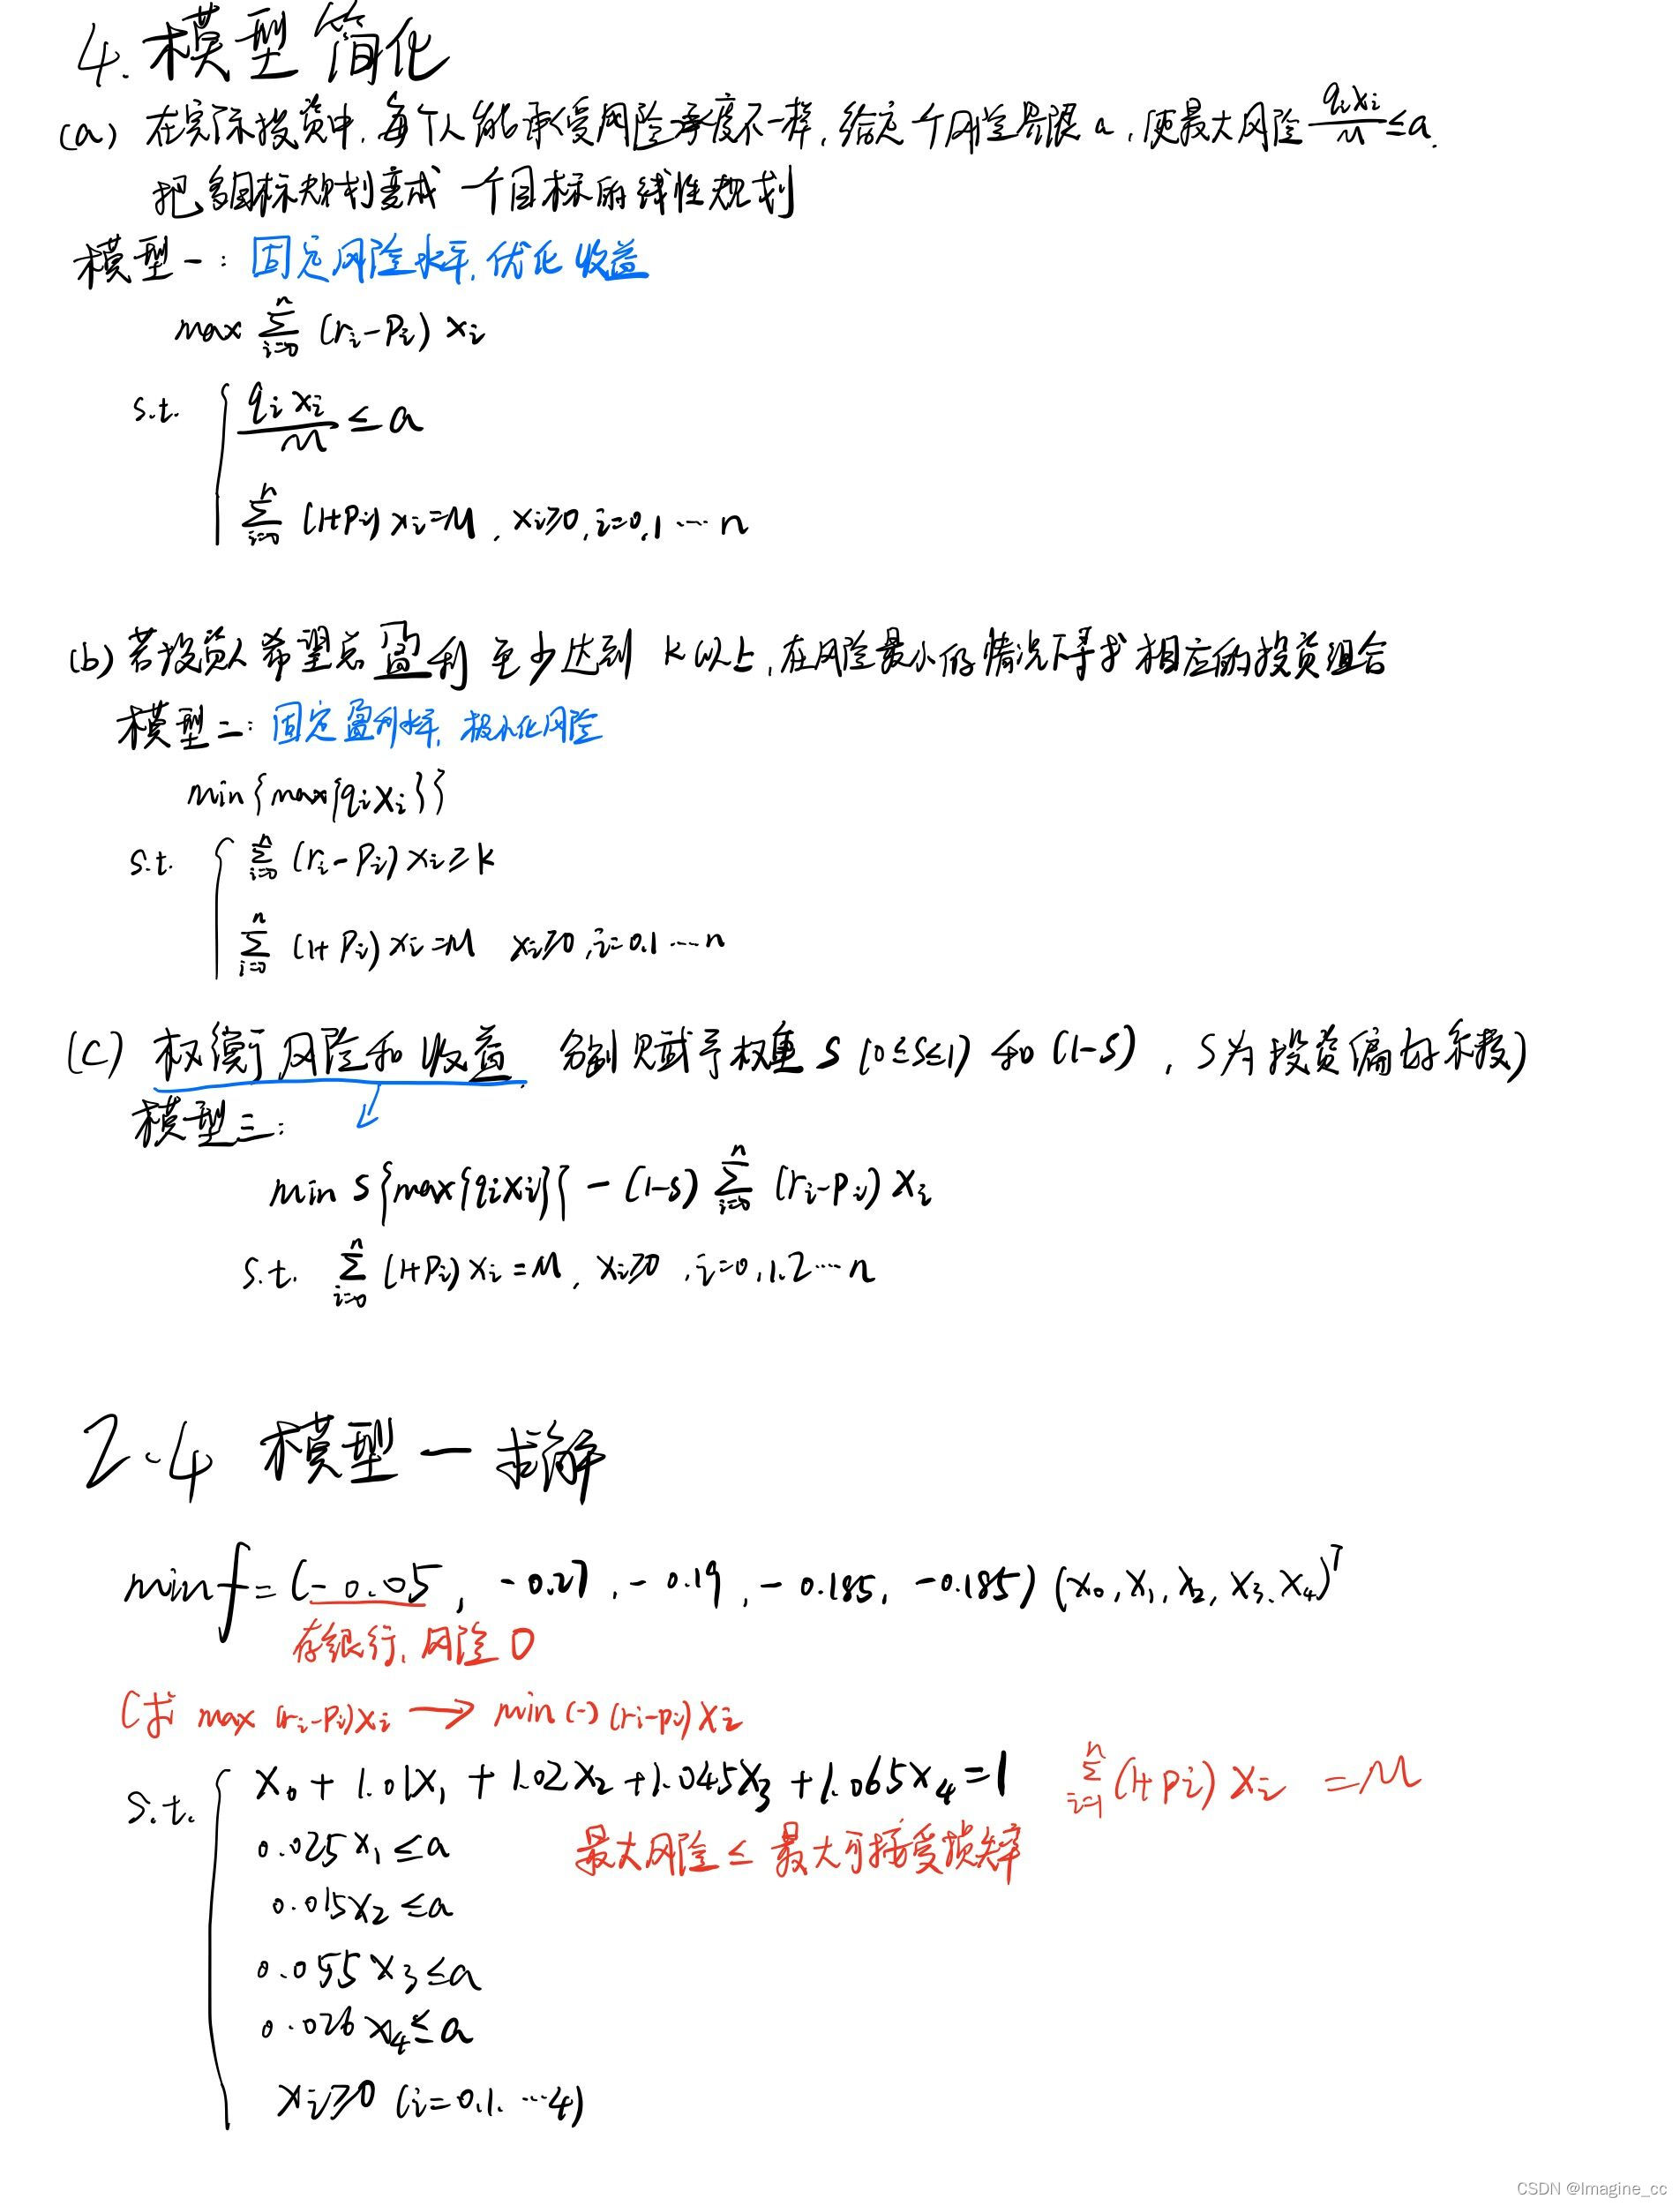 4. 模型简化
(a) 在实际投资中，每个人能承受风险程度不一样，给定一个风险界限 a，使最大风险 qᵢxᵢ/M ≤ a.
把多目标规划变成一个目标的线性规划
模型一：固定风险水平，优化收益
max ∑ⁿᵢ₌₀ (rᵢ-pᵢ) xᵢ
s.t. { qᵢxᵢ/M ≤ a
∑ⁿᵢ₌₀ (1+pᵢ) xᵢ=M, xᵢ≥0, i=0,1⋯n
(b) 若投资人希望总盈利至少达到 k以上，在风险最小的情况下寻求相应的投资组合
模型二：固定盈利水平，极小化风险
min{max{qᵢxᵢ}}
s.t. { ∑ⁿᵢ₌₀ (rᵢ-pᵢ) xᵢ≥k
∑ⁿᵢ₌₀ (1+pᵢ) xᵢ=M xᵢ≥0, i=0.1⋯n
(c) 权衡风险和收益，分别赋予权重 s (0≤s≤1) 和 (1-s)，s为投资偏好系数)
模型三：
min s{max{qᵢxᵢ}} - (1-s) ∑ⁿᵢ₌₀ (rᵢ-pᵢ) xᵢ
s.t. ∑ⁿᵢ₌₀ (1+pᵢ) xᵢ=M, xᵢ≥0, i=0,1.2⋯n
2.4 模型一求解
min f = (-0.05, -0.27, -0.19, -0.185, -0.185) (x₀, x₁, x₂, x₃, x₄)ᵀ
存银行，风险0
(求 max (rᵢ-pᵢ)xᵢ → min (-) (rᵢ-pᵢ)xᵢ
s.t. { x₀ + 1.01x₁ + 1.02x₂ + 1.045x₃ + 1.065x₄ = 1 ∑ⁿᵢ₌₁ (1+pᵢ) xᵢ = M
0.025x₁ ≤ a 最大风险 ≤ 最大可接受损失率
0.015x₂ ≤ a
0.055x₃ ≤ a
0.026x₄ ≤ a
xᵢ≥0 (i=0.1.⋯4)
CSDN @Imagine_cc